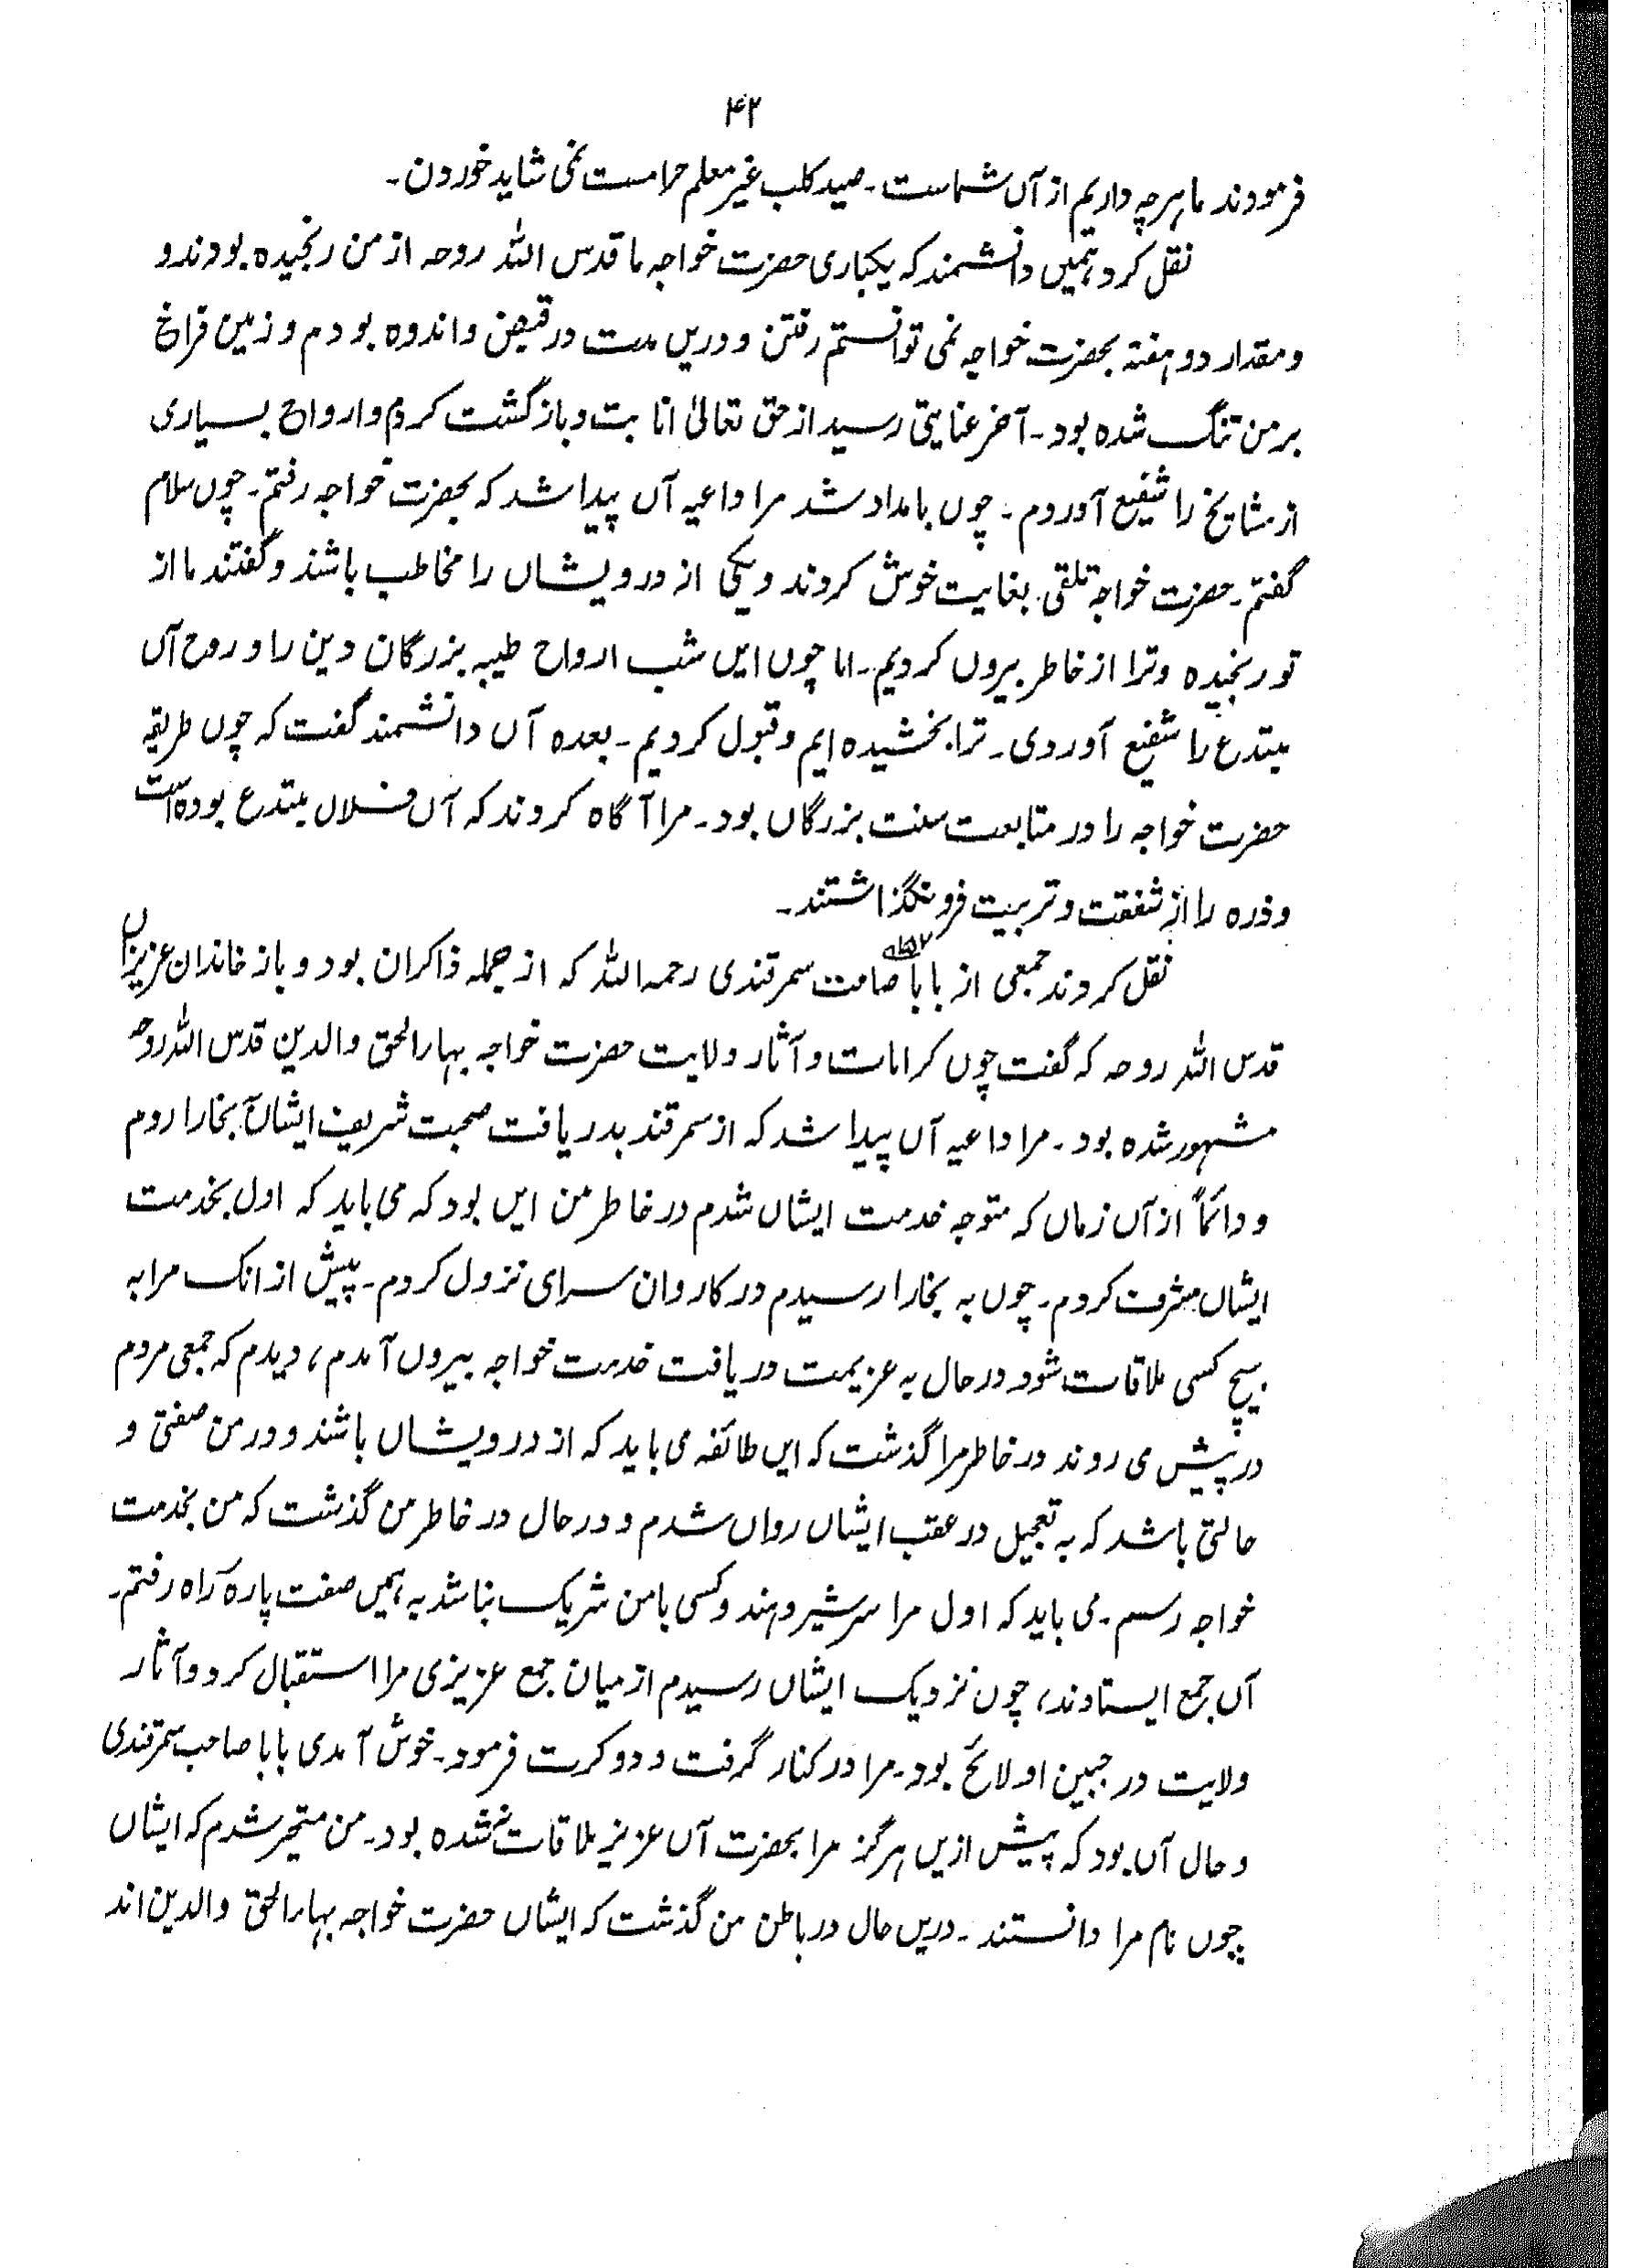 ۴۲
فرمودند ما ہرچہ داریم از آں شماست۔ صید کلب غیر معلم حرامست نمی شاید خوردن۔
نقل کرد ہمیں دانشمند کہ یکباری حضرت خواجہ ما قدس اللہ روحہ از من رنجیدہ بودند و
و مقدار دو ہفتہ بحضرت خواجہ نمی توانستم رفتن و دریں مدت در قبض و اندوہ بودم و زمین فراخ
بر من تنگ شدہ بود۔ آخر عنایتی رسید از حق تعالیٰ انابت و بازگشت کردم و ارواح بسیاری
از مشایخ را شفیع آوردم۔ چوں بامداد شد مرا داعیہ آں پیدا شد کہ بحضرت خواجہ رفتم۔ چوں سلام
گفتم۔ حضرت خواجہ تلقی بغایت خوش کردند و یکی از درویشاں را مخاطب باشند و گفتند ما از
تو رنجیدہ و ترا از خاطر بیروں کردیم۔ اما چوں ایں شب ارواح طیبہ بزرگان دین را و روح آں
مبتدع را شفیع آوردی۔ ترا بخشیدہ ایم و قبول کردیم۔ بعدہ آں دانشمند گفت کہ چوں طریقہ
حضرت خواجہ را در متابعت سنت بزرگاں بود۔ مرا آگاہ کردند کہ آں فلاں مبتدع بودہ است
و ذرہ را از شفقت و تربیت فرو نگذاشتند۔
نقل کردند جمعی از بابا صامت سمرقندی رحمہ اللہ کہ از جملہ ذاکران بود و باز خاندان عزیزاں
قدس اللہ روحہ کہ گفت چوں کرامات و آثار ولایت حضرت خواجہ بہاء الحق والدین قدس اللہ روحہ
مشہور شدہ بود۔ مرا داعیہ آں پیدا شد کہ از سمرقند بدریافت صحبت شریف ایشاں بخارا روم
و دائماً از آں زماں کہ متوجہ خدمت ایشاں شدم در خاطر من ایں بود کہ می باید کہ اول بخدمت
ایشاں مشرف کردم۔ چوں بہ بخارا رسیدم در کاروان سرای نزول کردم۔ پیش از انک مرا بہ
ہیچ کسی ملاقات شود در حال بہ عزیمت دریافت خدمت خواجہ بیروں آمدم، دیدم کہ جمعی مردم
در پیش می روند در خاطر مرا گذشت کہ ایں طائفہ می باید کہ از درویشاں باشند و در من صفتی و
حالتی باشد کہ بہ تعجیل در عقب ایشاں رواں شدم و در حال در خاطر من گذشت کہ من بخدمت
خواجہ رسم۔ می باید کہ اول مرا سرشیر دہند و کسی بامن شریک نباشد بہ ہمیں صفت پارہ راہ رفتم۔
آں جمع ایستادند، چون نزدیک ایشاں رسیدم از میان جمع عزیزی مرا استقبال کرد و آثار
ولایت در جبین او لائح بود۔ مرا در کنار گرفت و دو کرت فرمود۔ خوش آمدی بابا صاحب سمرقندی
و حال آں بود کہ پیش ازیں ہرگز مرا بحضرت آں عزیز ملاقات نشدہ بود۔ من متحیر شدم کہ ایشاں
چوں نام مرا دانستند۔ دریں حال در باطن من گذشت کہ ایشاں حضرت خواجہ بہاء الحق والدین اند